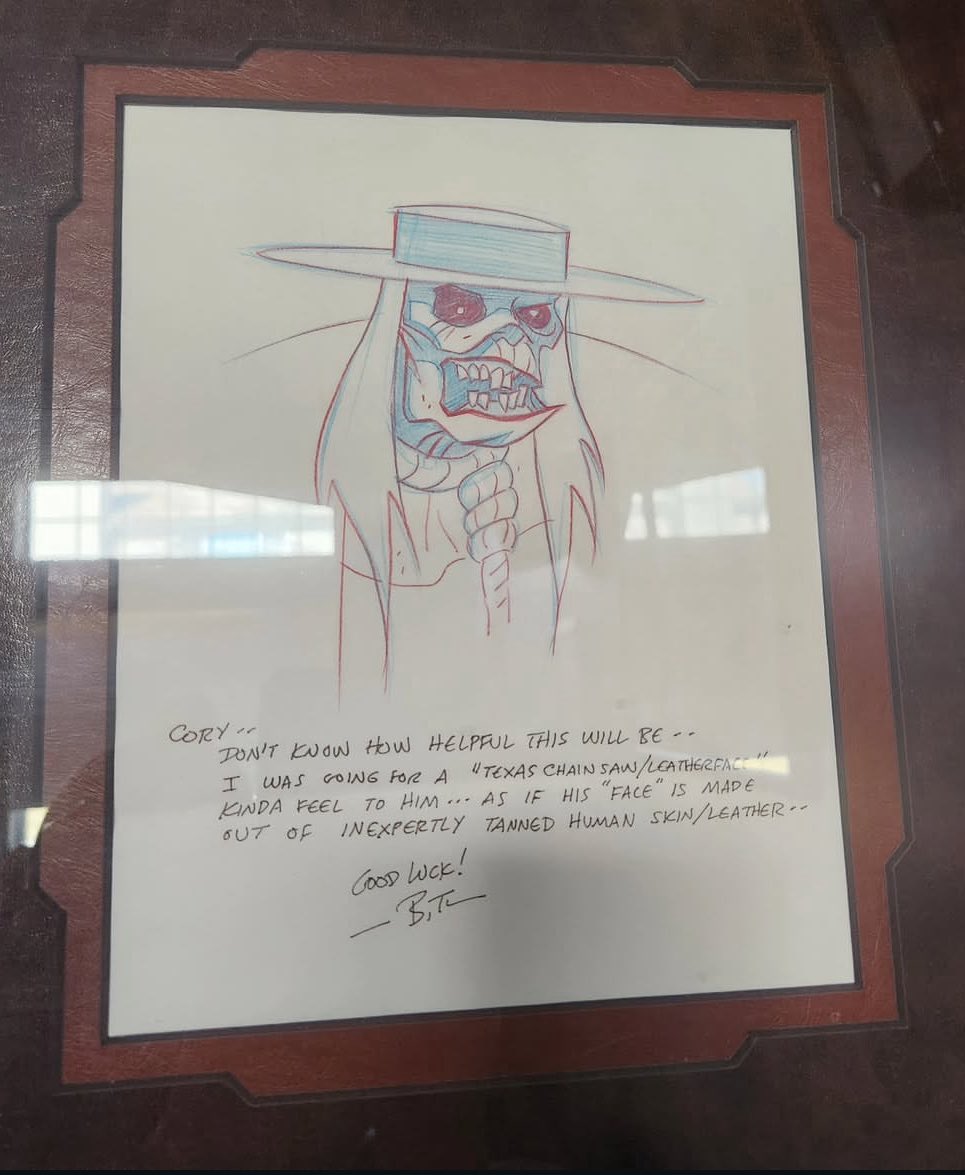 CORY--
DON'T KNOW HOW HELPFUL THIS WILL BE--
I WAS GOING FOR A "TEXAS CHAINSAW/LEATHERFACE"
KINDA FEEL TO HIM... AS IF HIS "FACE" IS MADE
OUT OF INEXPERTLY TANNED HUMAN SKIN/LEATHER--
GOOD LUCK!